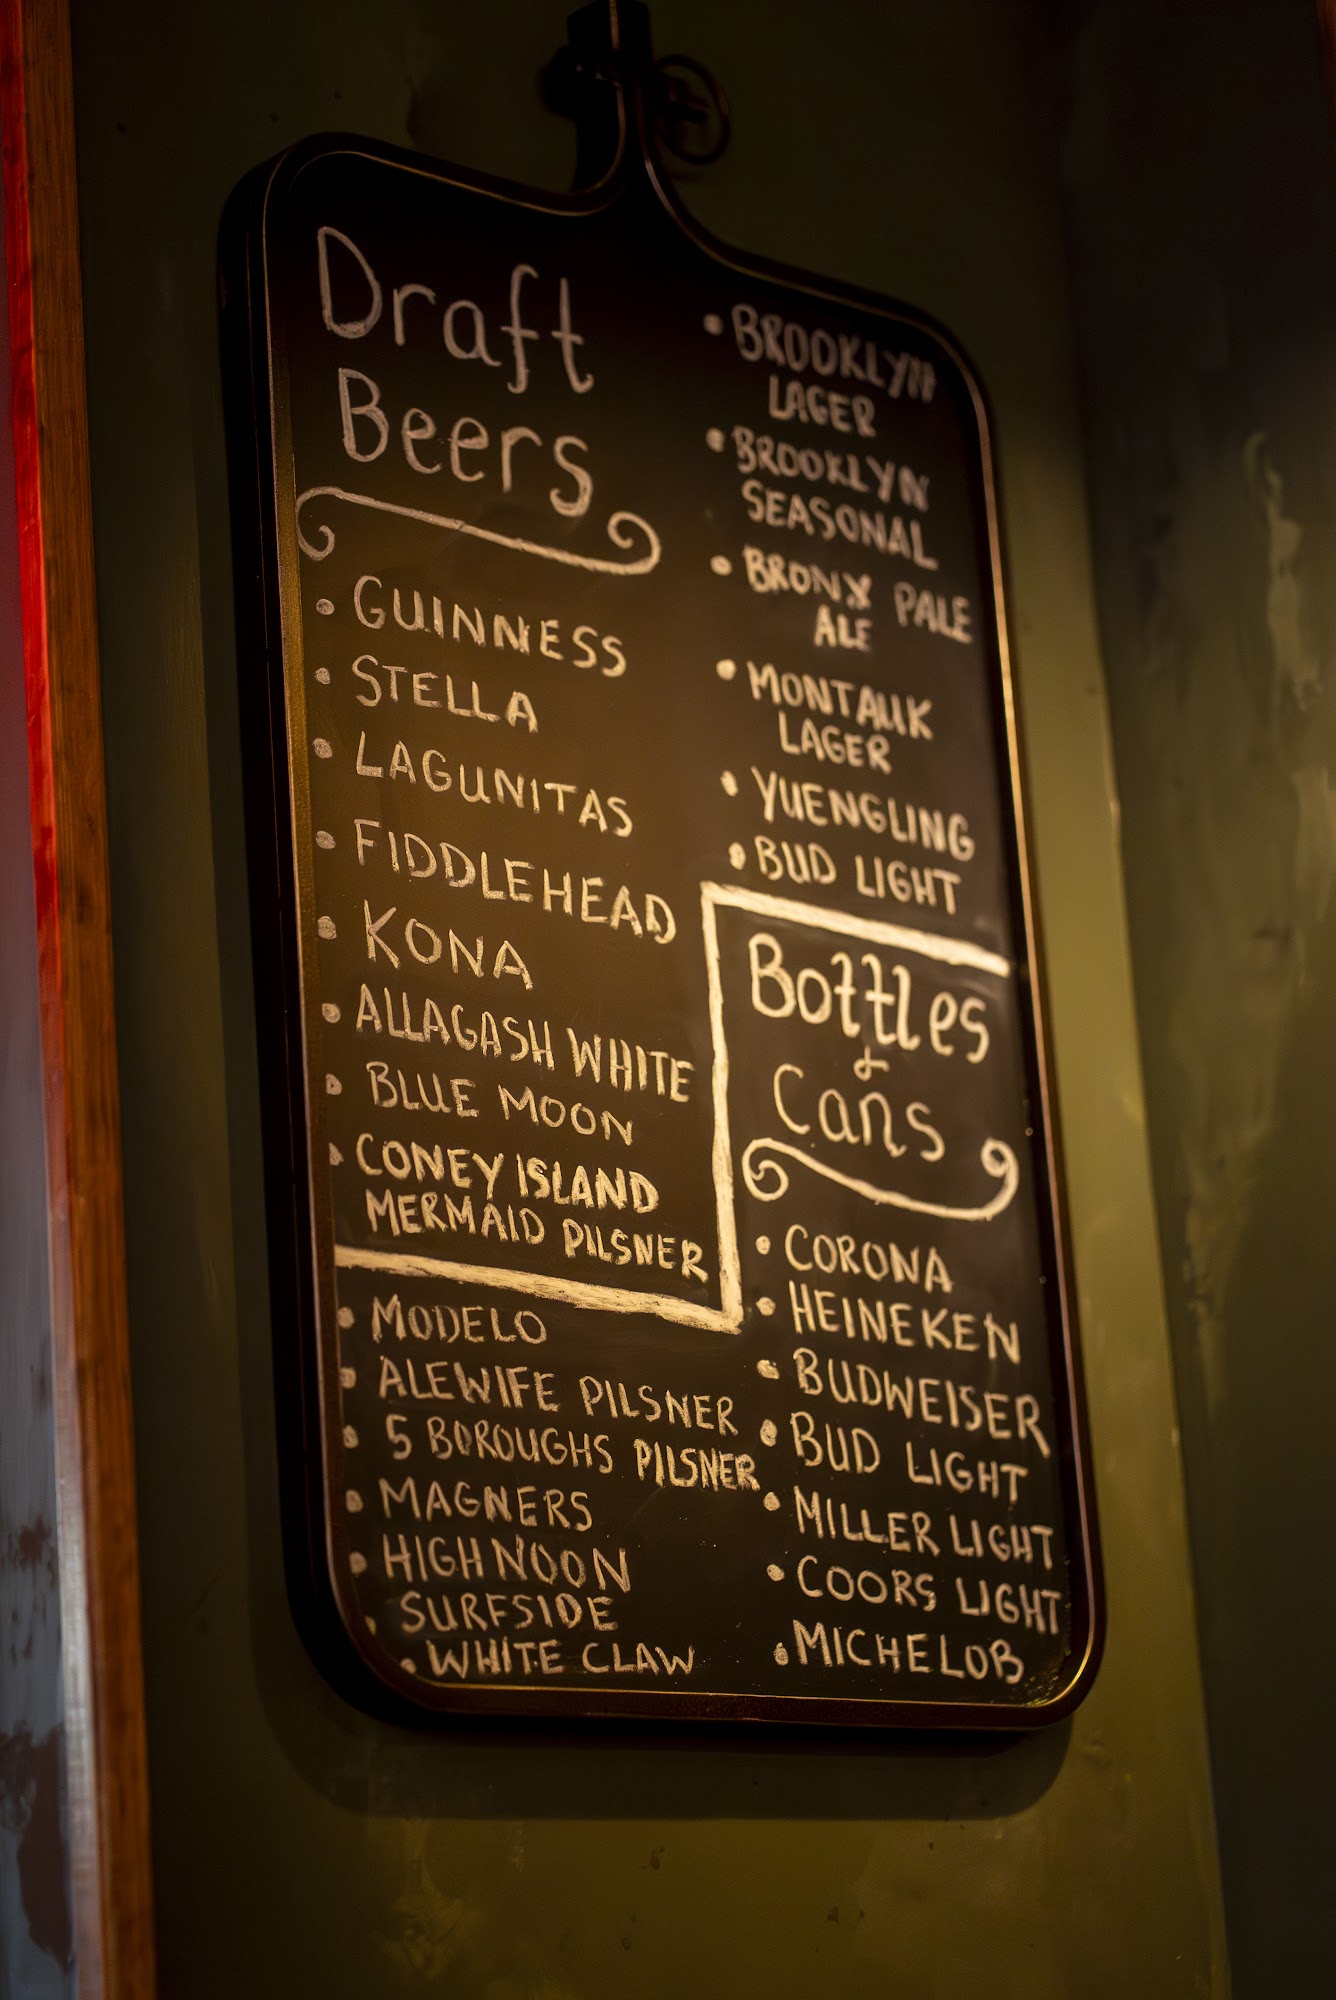 Draft
Beers
• GUINNESS
• STELLA
• LAGUNITAS
• FIDDLEHEAD
• KONA
• ALLAGASH WHITE
• BLUE MOON
• CONEY ISLAND
MERMAID PILSNER
• BROOKLYN
LAGER
• BROOKLYN
SEASONAL
• BRONX PALE
ALE
• MONTAUK
LAGER
• YUENGLING
• BUD LIGHT
Bottles
&
Cans
• CORONA
• HEINEKEN
• BUDWEISER
• BUD LIGHT
• MILLER LIGHT
• COORS LIGHT
• MICHELOB
• MODELO
• ALEWIFE PILSNER
• 5 BOROUGHS PILSNER
• MAGNERS
• HIGH NOON
• SURFSIDE
• WHITE CLAW